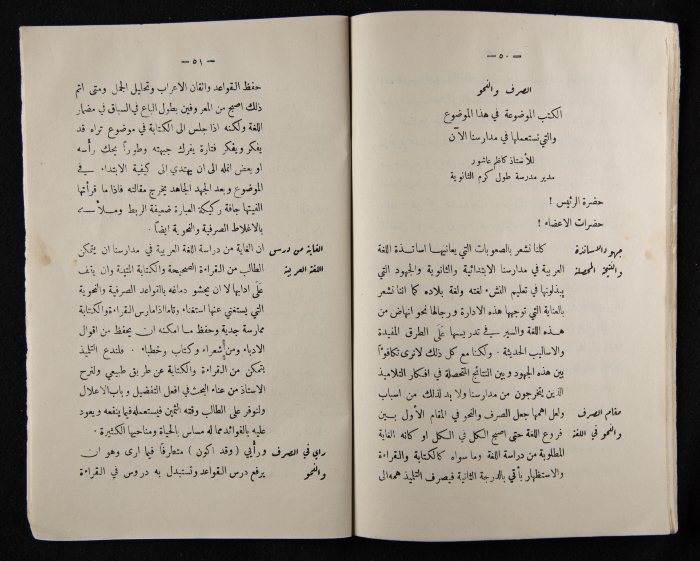 — ٥٠ —
الصرف والنحو
الكتب الموضوعة في هذا الموضوع
والتي نستعملها في مدارسنا الآن
للأستاذ كاظم عاشور
مدير مدرسة طول كرم الثانوية
حضرة الرئيس !
حضرات الاعضاء !
جهود الاساتذة
والنتيجة المحصلة
كلنا نشعر بالصعوبات التي يعانيها اساتذة اللغة
العربية في مدارسنا الابتدائية والثانوية والجهود التي
يبذلونها في تعليم النشء لغته ولغة بلاده كما اننا نشعر
بالعناية التي توجهها هذه الادارة ورجالها نحو انهاض من
هذه اللغة والسير في تدريسها عَلَى الطرق المفيدة
والاساليب الحديثة . ولكنا مع كل ذلك لا نرى تكافؤاً
بين هذه الجهود وبين النتائج المتحصلة في افكار التلاميذ
الذين يتخرجون من مدارسنا ولا بد لذلك من اسباب
مقام الصرف
والنحو في اللغة
ولعل اهمها جعل الصرف والنحو في المقام الأول بين
فروع اللغة حتى اصبح الكل في الكل او كانه الغاية
المطلوبة من دراسة اللغة وما سواه كالكتابة والقراءة
والاستظهار يأتي بالدرجة الثانية فيصرف التلميذ همه الى
— ٥١ —
حفظ القواعد واتقان الاعراب وتحليل الجمل ومتى اتم
ذلك اصبح من المعروفين بطول الباع في السباق في مضمار
اللغة ولكنه اذا جلس الى الكتابة في موضوع تراه قد
يفكر ويفكر فتارة يفرك جبهته وطوراً يحك رأسه
او بعض انمله الى ان يهتدي الى كيفية الابتداء في
الموضوع وبعد الجهد الجاهد يخرج مقالته فاذا ما قرأتها
الفيتها جافة ركيكة العبارة ضعيفة الربط وملأى
بالاغلاط الصرفية والنحوية ايضاً .
الغاية من درس
اللغة العربية
ان الغاية من دراسة اللغة العربية في مدارسنا ان يتمكن
الطالب من القراءة الصحيحة والكتابة المتينة وان يقف
عَلَى ادابها لا ان يحشو دماغه بالقواعد الصرفية والنحوية
التي يستغني عنها استغناء تاما اذا مارس القراءة والكتابة
ممارسة جدية وحفظ ما امكنه ان يحفظ من اقوال
الادباء ومن شعراء وكتاب وخطباء . فلندع التلميذ
يتمكن من القراءة والكتابة عن طريق طبيعي ولنرح
الاستاذ من عناء البحث في افعل التفضيل وباب الاعلال
ولنوفر على الطالب وقته الثمين فيستعمله فيما ينفعه ويعود
عليه بالفوائد مما له مساس بالحياة ومناحيها الكثيرة .
راي في الصرف
والنحو
ورأيي ( وقد اكون ) متطرفاً فيما ارى وهو ان
يرفع درس القواعد وتستبدل به دروس في القراءة